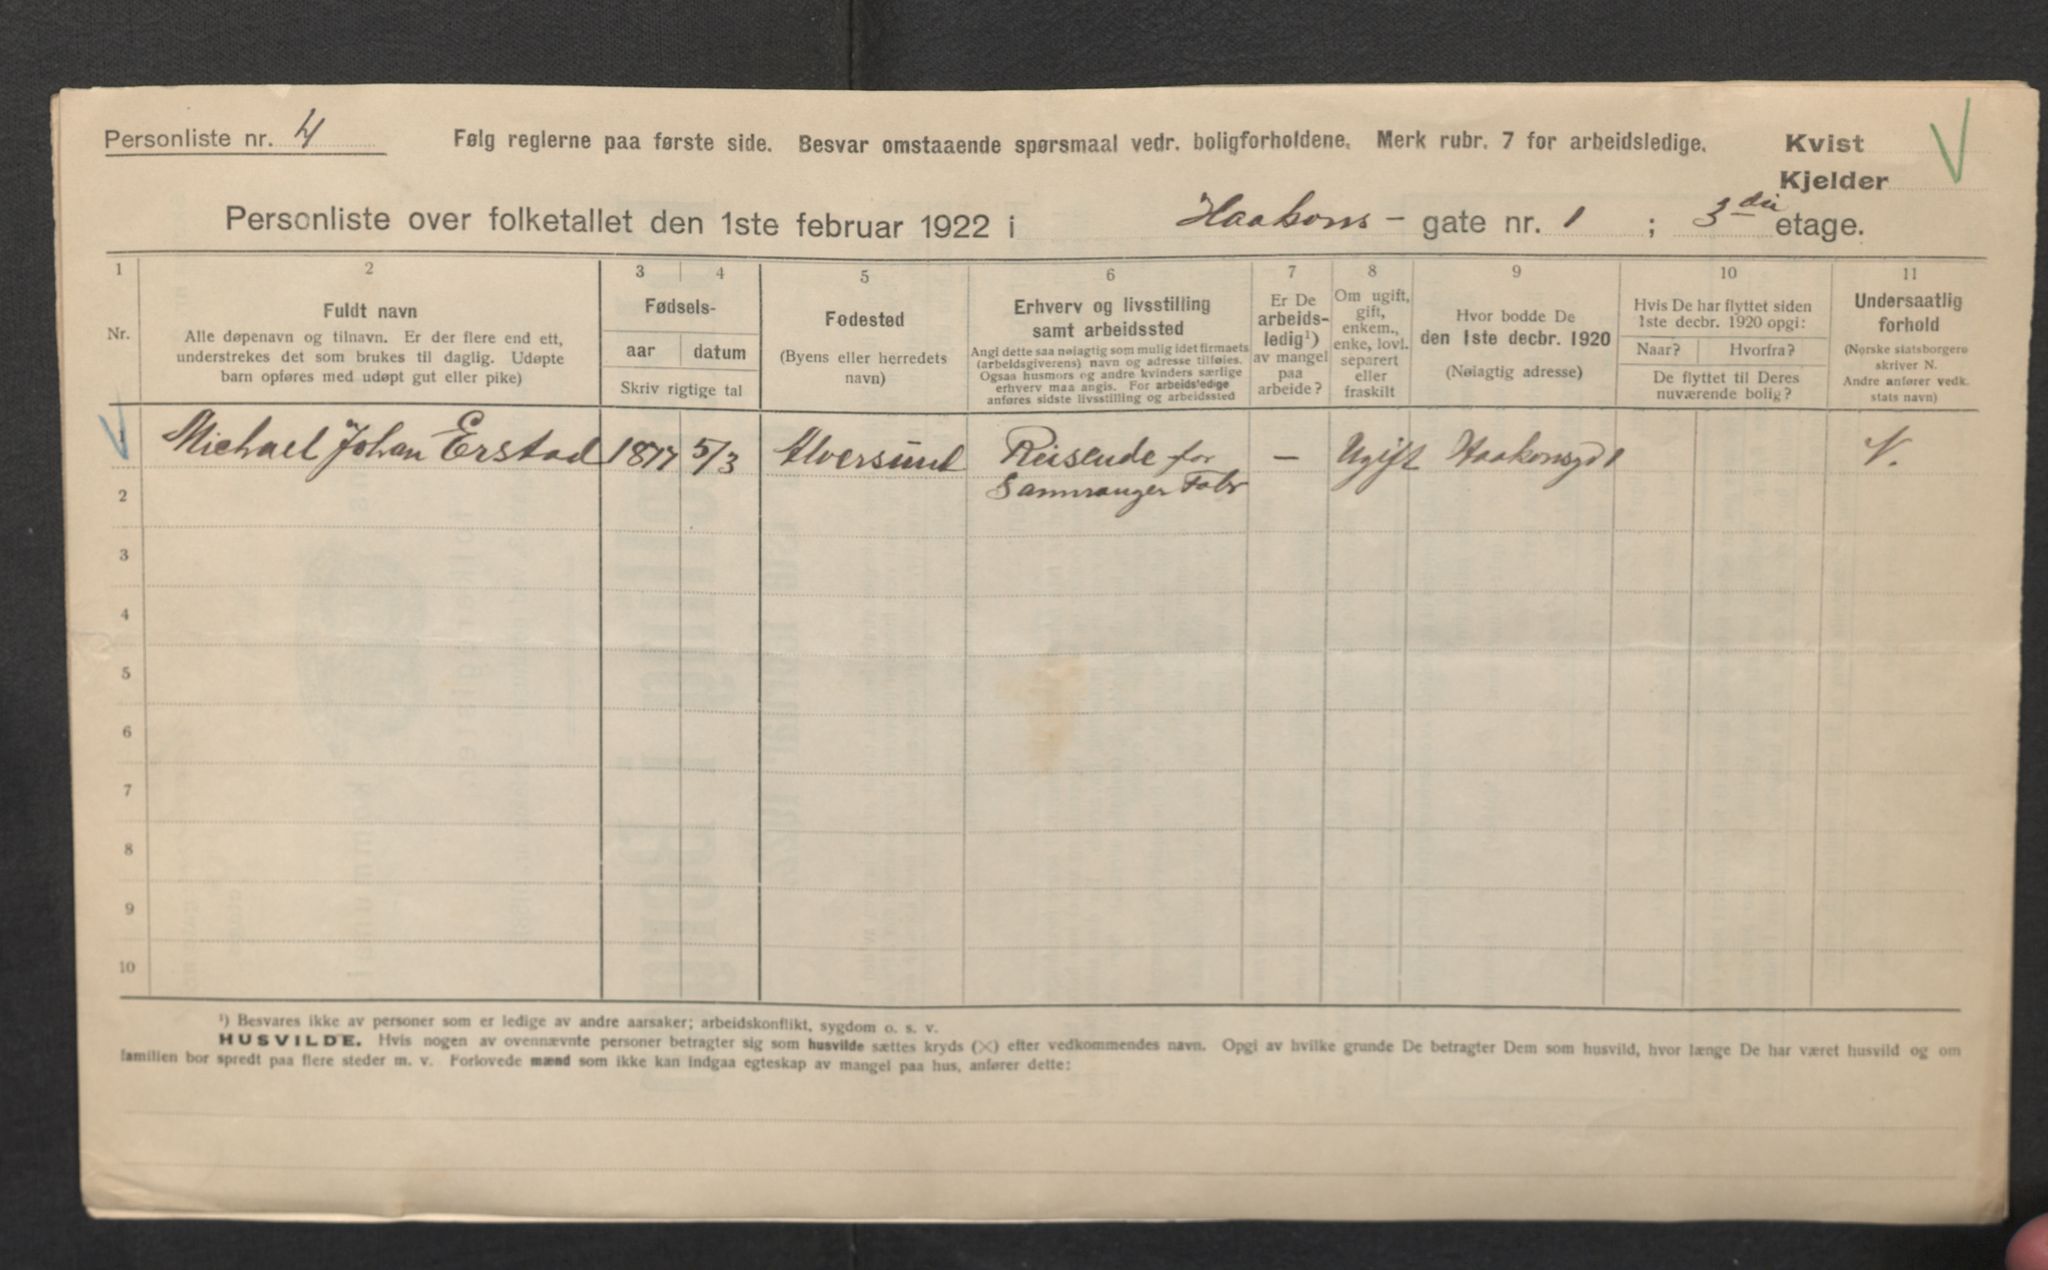 Personliste nr. 4 Følg reglerne paa første side. Besvar omstaaende spørsmaal vedr. boligforholdene. Merk rubr. 7 for arbeidsledige. Kvist
Kjelder
Personliste over folketallet den 1ste februar 1922 i Haakons- gate nr. 1 ; 3die etage.
1 2 3 4 5 6 7 8 9 10 11
Nr.
Fuldt navn
Alle døpenavn og tilnavn. Er der flere end ett,
understrekes det som brukes til daglig. Udøpte
barn opføres med udøpt gut eller pike)
Fødsels-
aar datum
Skriv rigtige tal
Fødested
(Byens eller herredets
navn)
Erhverv og livsstilling
samt arbeidssted
Angi dette saa nøiagtig som mulig idet firmaets
(arbeidsgiverens) navn og adresse tilføies.
Ogsaa husmors og andre kvinders særlige
erhverv maa angis. For arbeidsledige
anføres sidste livsstilling og arbeidssted
Er De
arbeids-
ledig¹)
av mangel
paa
arbeide?
Om ugift,
gift,
enkem.,
enke, lovl.
separert
eller
fraskilt
Hvor bodde De
den 1ste decbr. 1920
(Nøiagtig adresse)
Hvis De har flyttet siden
1ste decbr. 1920 opgi:
Naar? Hvorfra?
De flyttet til Deres
nuværende bolig?
Undersaatlig
forhold
(Norske statsborgere
skriver N.
Andre anfører vedk.
stats navn)
1 Michael Johan Erstad 1877 5/3 Alversund Reisende for — Ugift Haakonsgd 1 N.
2 Samnanger Fabr
3
4
5
6
7
8
9
10
¹) Besvares ikke av personer som er ledige av andre aarsaker; arbeidskonflikt, sygdom o. s. v.
HUSVILDE. Hvis nogen av ovennævnte personer betragter sig som husvilde sættes kryds (×) efter vedkommendes navn. Opgi av hvilke grunde De betragter Dem som husvild, hvor længe De har været husvild og om
familien bor spredt paa flere steder m. v. Forlovede mænd som ikke kan indgaa egteskap av mangel paa hus, anfører dette: